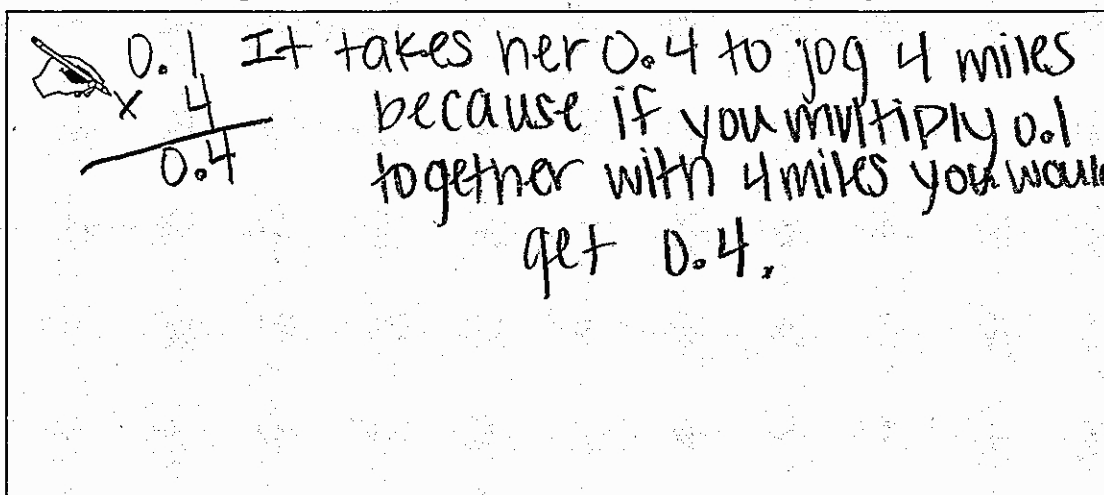 0.1 It takes her 0.4 to jog 4 miles
x 4 because if you multiply 0.1
0.4 together with 4 miles you would
get 0.4.